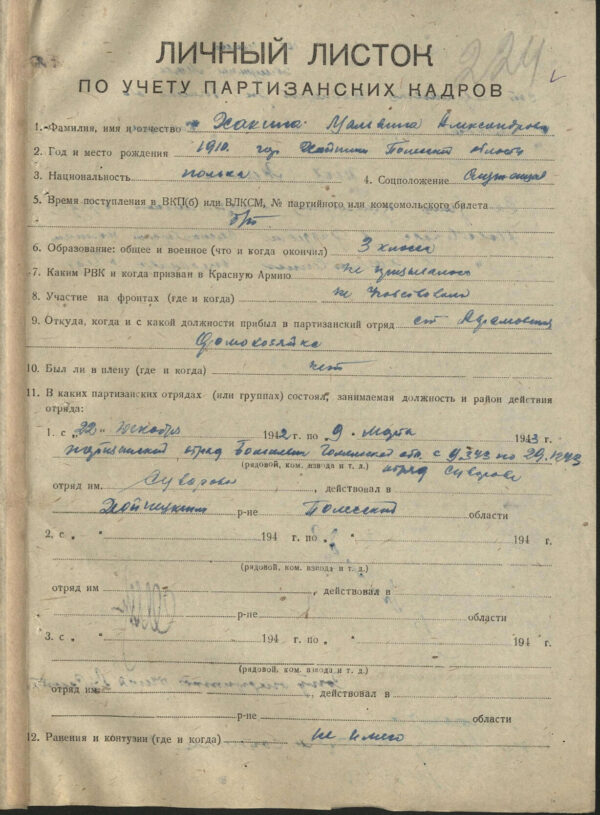 224
ЛИЧНЫЙ ЛИСТОК
ПО УЧЕТУ ПАРТИЗАНСКИХ КАДРОВ
1. Фамилия, имя и отчество Александровн
2. Год и место рождения 1910. год Полесской области
3. Национальность полька 4. Соцположение Служащая
5. Время поступления в ВКП(б) или ВЛКСМ, № партийного или комсомольского билета
б/п
6. Образование: общее и военное (что и когда окончил) 3 класса
7. Каким РВК и когда призван в Красную Армию не
8. Участие на фронтах (где и когда) не
9. Откуда, когда и с какой должности прибыл в партизанский отряд ст
10. Был ли в плену (где и когда) нет
11. В каких партизанских отрядах (или группах) состоял, занимаемая должность и район действия
отряда:
1. с „22" декабря 1942 г. по „9" марта 1943 г.
отряд Гомельской обл. с по
(рядовой, ком. взвода и т. д.) отряд Суворова
отряд им. Суворова, действовал в
Хойницким р-не Полесской области
2. с „ " 194 г. по „ " 194 г.
(рядовой, ком. взвода и т. д.)
отряд им , действовал в
р-не области
3. с „ " 194 г. по „ " 194 г.
(рядовой, ком. взвода и т. д.)
отряд им. , действовал в
р-не области
12. Ранения и контузии (где и когда) не имею